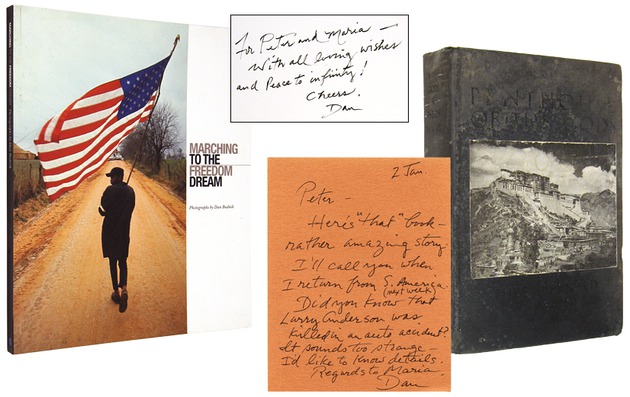 MARCHING
FREEDOM
MARCHING
TO THE
FREEDOM
DREAM
Photographs by Dan Budnik
For Peter and Maria —
With all loving wishes
and Peace to infinity!
Cheers.
Dan
2 Jan.
Peter —
Here's "that" book —
rather amazing story.
I'll call you when
I return from S. America.
(next week)
Did you know that
Larry Anderson was
killed in an auto accident?
It sounds too strange —
I'd like to know details.
Regards to Maria.
Dan